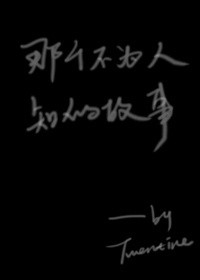 那个不为人
知的故事
——by
Twentine